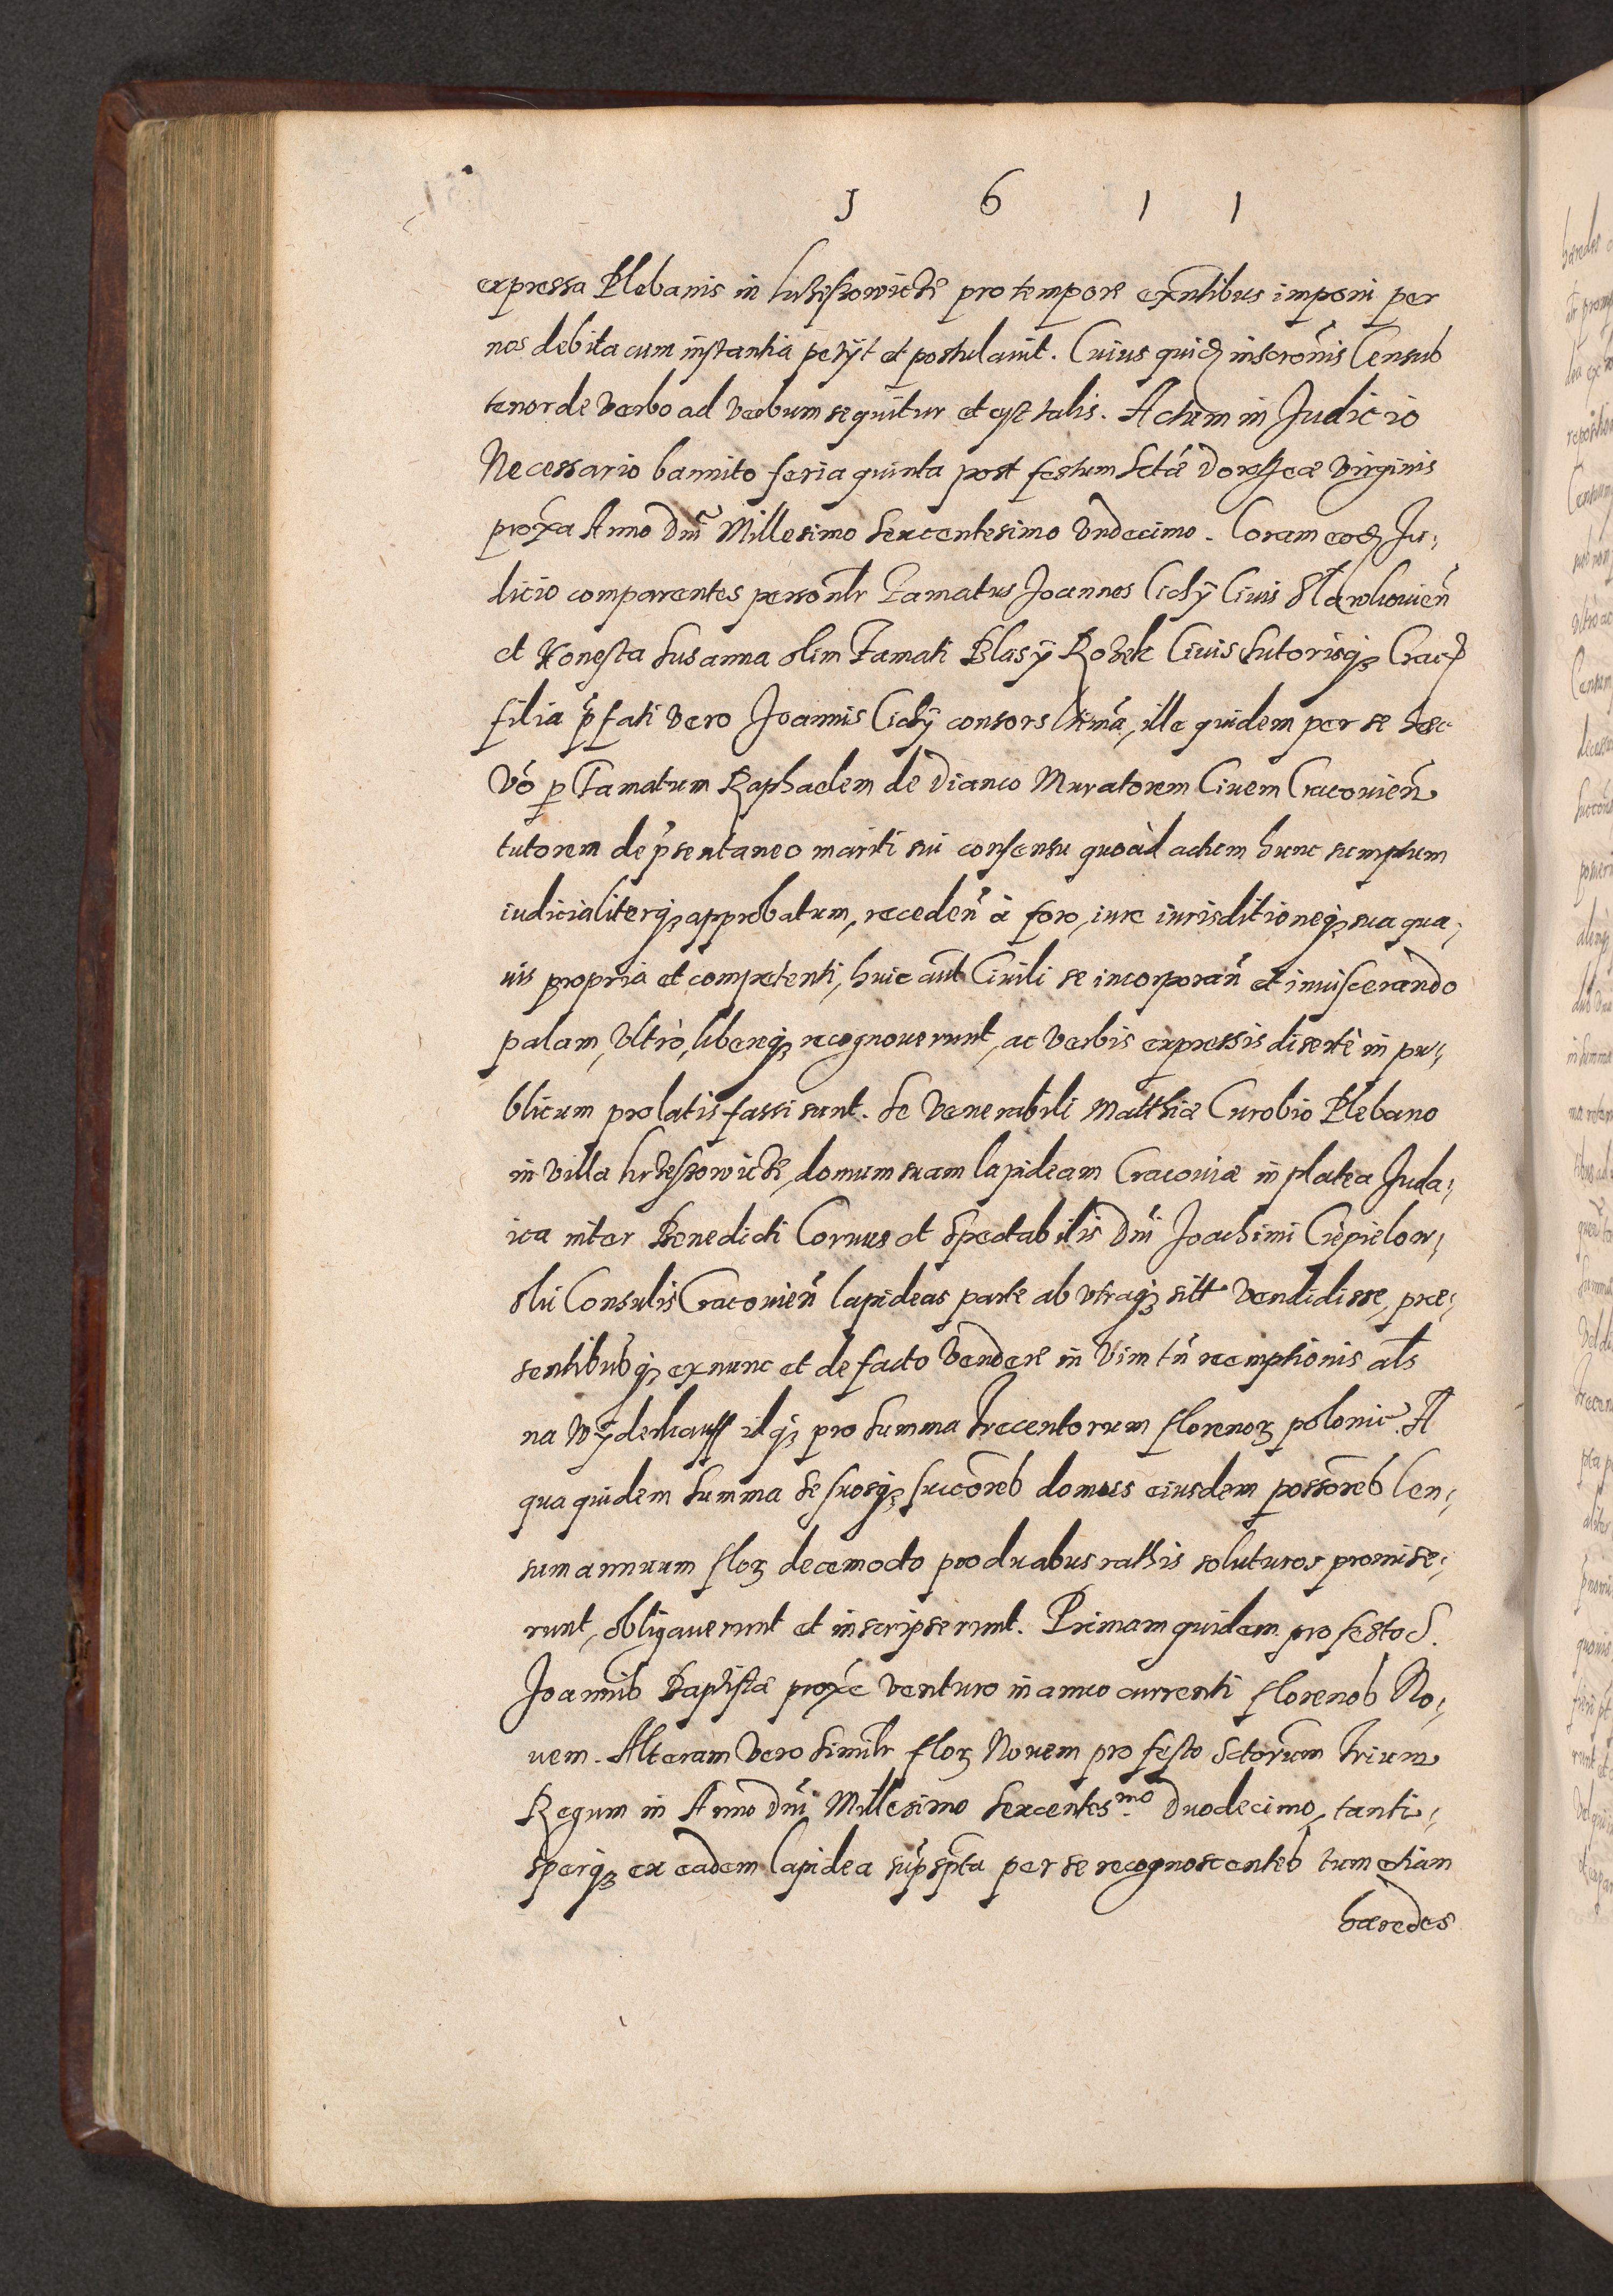 1 6 1 1
expressa Plebanis in krzeszowicze pro tempore exñtibus imponi per
nos debita cum instantia petÿt et postulauit. Cuius quid inscrõnis Census
tenor de verbo ad verbum sequitur et est talis. Actum in Judicio
Necessario bannito feria quinta post festum Sctæ Dorotheæ Virginis
proxa Anno Dni Millesimo Sexcentesimo Vndecimo. Coram eod Ju,
dicio comparentes personlr Famatus Joannes Cichÿ Ciuis
et Honesta Susanna olim Famati Blasÿ Rozek Ciuis Sutorisq3 Crac
filia p̃fati vero Joannis Cichÿ consors ltima, ille quidem per se hæc
vó p Famatum Raphaelem de Dianco Muratorem Ciuem Cracouien
tutorem de p̃sentaneo mariti sui consensu quoad actum hunc sumptum
iudicialiterq3 approbatum, receden̄ à foro, iure iurisditioneq3 sua qua,
uis propria et competenti, huic aut Ciuili se incorporan̄ et inuiscerando
palam, vltrò, libereq3 recognouerunt, ac verbis expressis disertè in pu,
blicum prolatis fassi sunt. Se Venerabili Matthiæ Curobio Plebano
in villa krzeszowicze, domum suam lapideam Cracouiæ in platea Juda,
ica inter Benedicti Cornus et Spectabilis Dni Joachimi Ciepielow,
ski Consulis Cracouien̄ lapideas parte ab vtraq3 sitt vendidisse, præ,
sentibusq3 ex nunc et de facto vendere in vim tn̄ reemptionis als
na wÿderkauff idq3 pro summa Trecentorum florenor3 polonic. A
qua quidem summa se suosq3 succores domus eiusdem possores Cen,
sum annuum flor3 decemocto pro duabus rathis soluturos promise,
runt, obligauerunt et inscripserunt. Primam quidem pro festo S.
Joannis Baptistæ proxè venturo in anno currenti florenos No,
uem. Alteram vero simlr flor3 Nouem pro festo Sctorum Trium
Regum in Anno Dni Millesimo Sexcentes.mo Duodecimo, tanti,
sperq3 ex eadem lapidea supsp̃ta per se recognoscentes tum etiam
hæredes